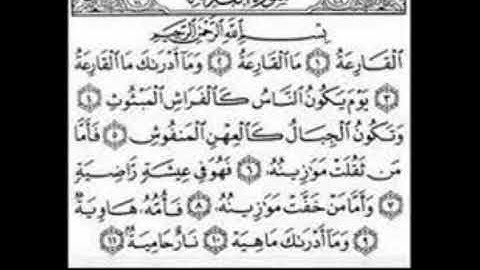 بِسْمِ ٱللَّهِ ٱلرَّحْمَٰنِ ٱلرَّحِيمِ
ٱلْقَارِعَةُ ١ مَا ٱلْقَارِعَةُ ٢ وَمَآ أَدْرَىٰكَ مَا ٱلْقَارِعَةُ
٣ يَوْمَ يَكُونُ ٱلنَّاسُ كَٱلْفَرَاشِ ٱلْمَبْثُوثِ ٤
وَتَكُونُ ٱلْجِبَالُ كَٱلْعِهْنِ ٱلْمَنفُوشِ ٥ فَأَمَّا
مَن ثَقُلَتْ مَوَٰزِينُهُۥ ٦ فَهُوَ فِى عِيشَةٍ رَّاضِيَةٍ
٧ وَأَمَّا مَنْ خَفَّتْ مَوَٰزِينُهُۥ ٨ فَأُمُّهُۥ هَاوِيَةٌ
٩ وَمَآ أَدْرَىٰكَ مَا هِيَهْ ١٠ نَارٌ حَامِيَةٌۢ ١١